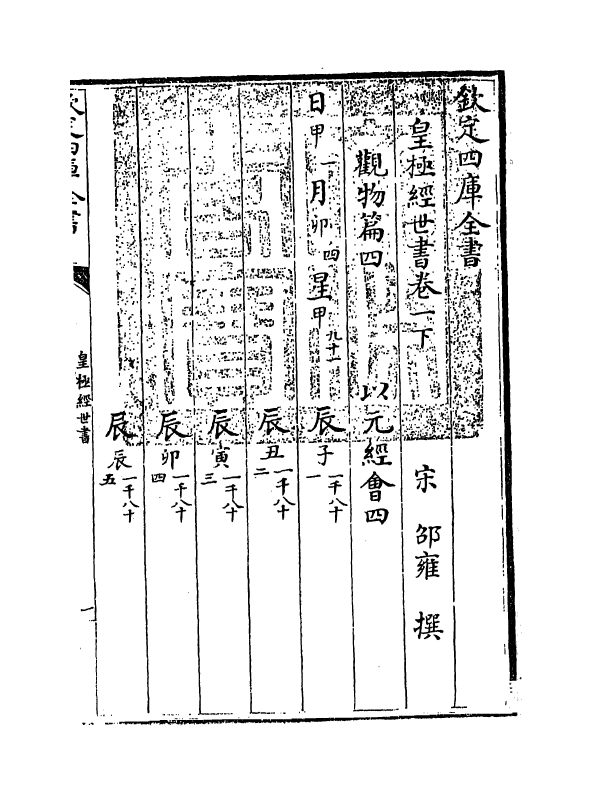 欽定四庫全書
皇極經世書卷一下 宋 邵雍 撰
觀物篇四 以元經會四
日甲一月卯四星甲九十一 辰子一千八十一
辰丑一千八十二
辰寅一千八十三
辰卯一千八十四
辰辰一千八十五
皇極經世書
一